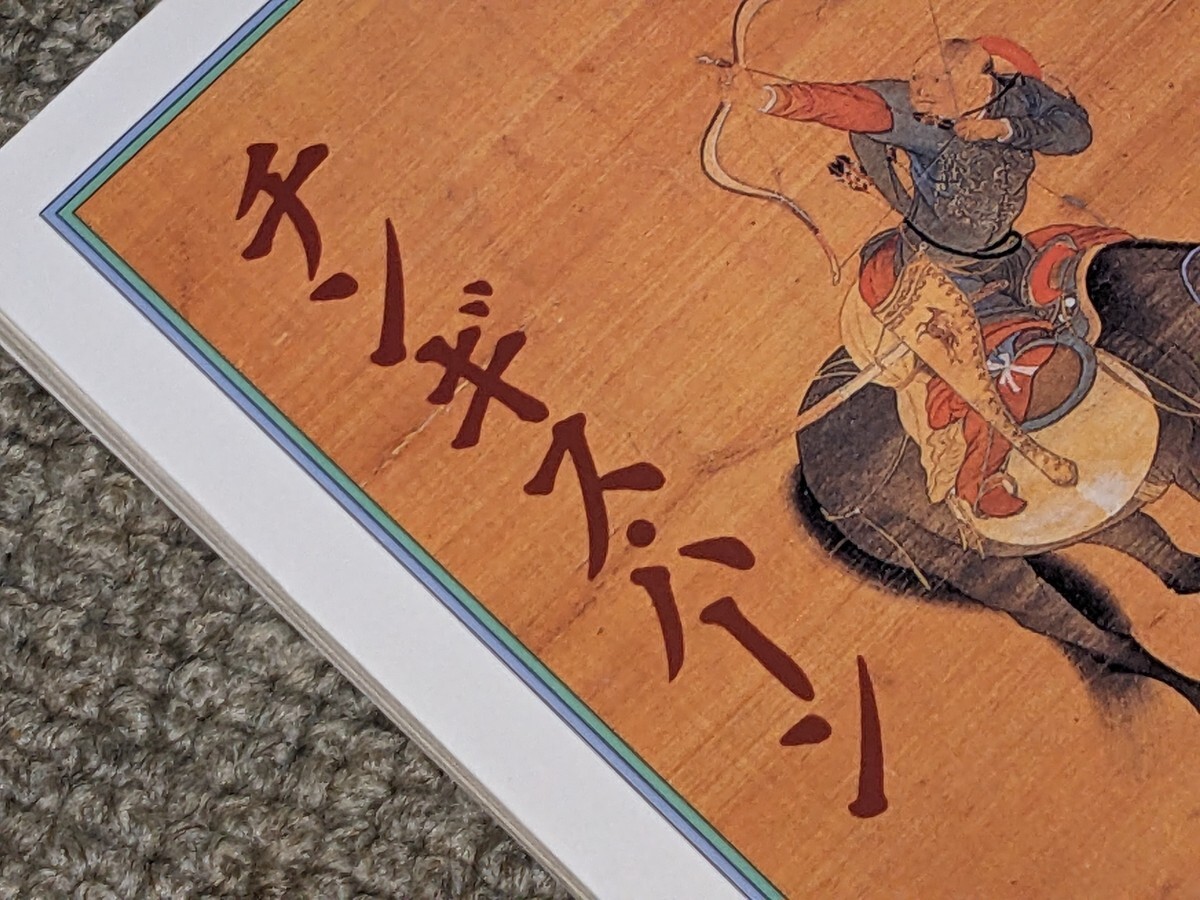 チンギス・ハーン